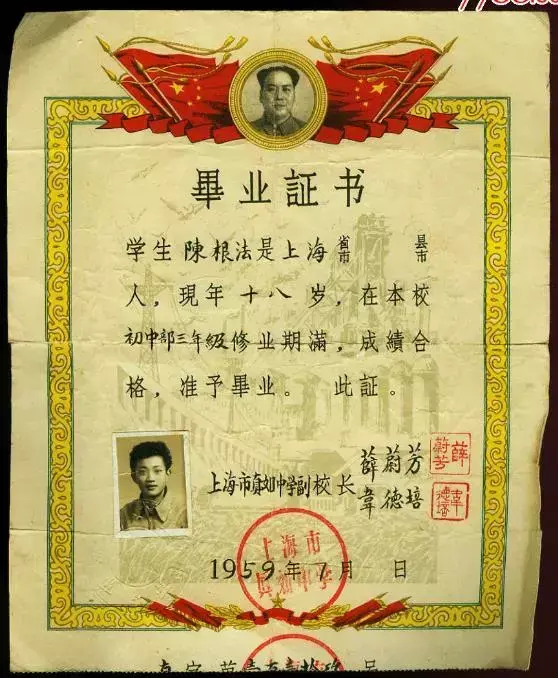 畢业証书
学生 陳根法是上海 省市 县市
人，現年十八岁，在本校
初中部三年級修业期滿，成績合
格，准予畢业。 此証。
上海市真如中学副校长 薛蔚芳
韋德培
薛蔚芳
韋德培
1959年7月 日
上海市
真如中学